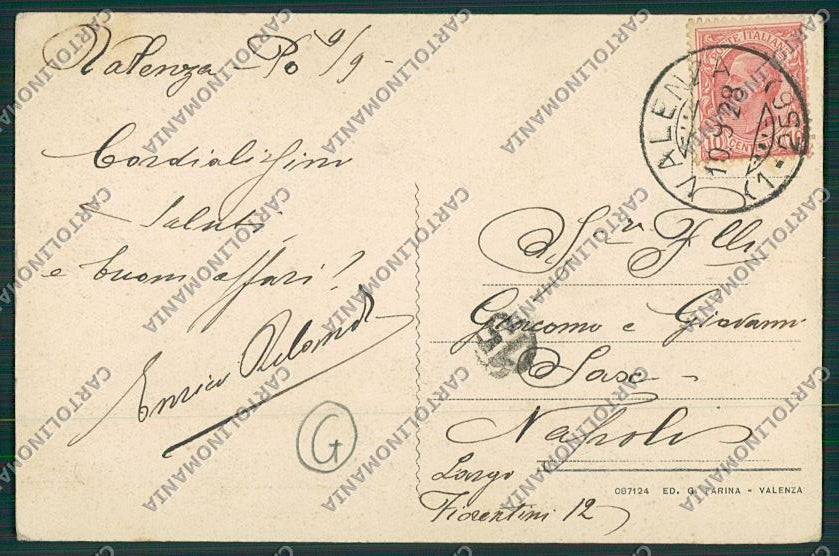 Valenza - Po 9/9 -
Cordialissimi
Saluti
e buoni affari!
Enrico
POSTE ITALIANE
10 CENT
VALENZA
10.9.28
Flli
Giacomo e Giovanni
Napoli
Largo
Fiorentini 12
087124 ED. G. FARINA - VALENZA
G
CARTOLINOMANIA